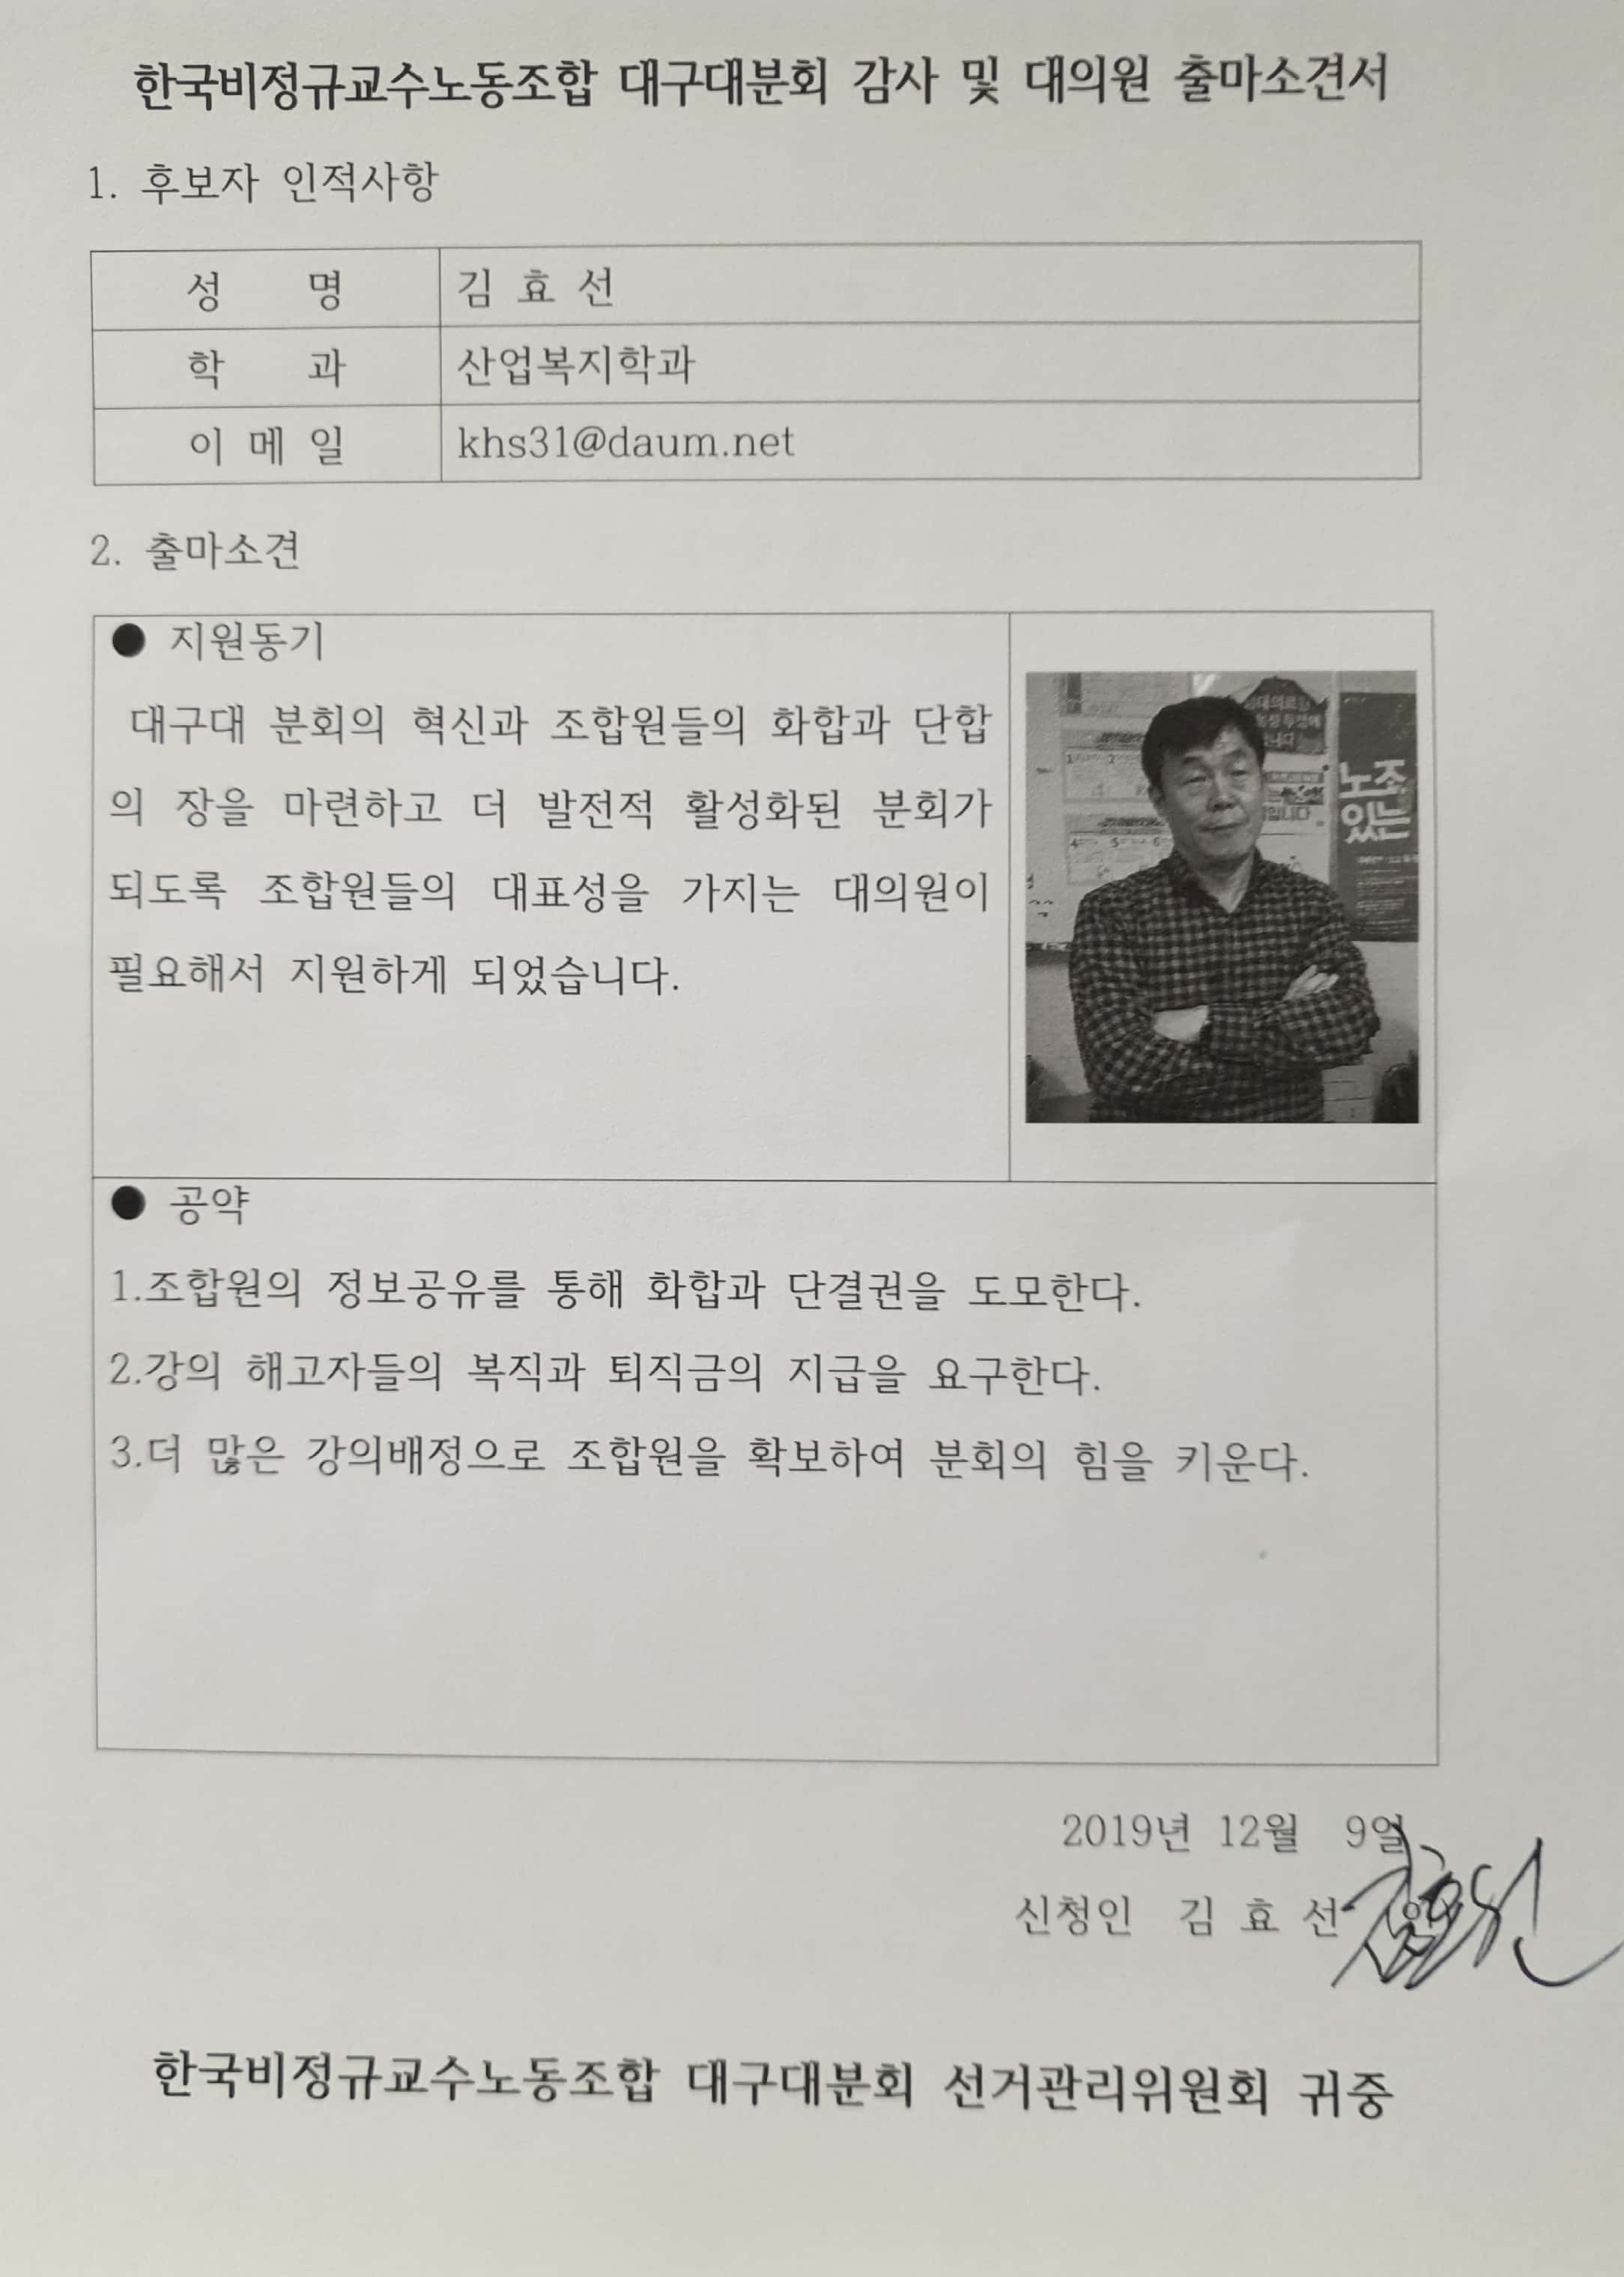 한국비정규교수노동조합 대구대분회 감사 및 대의원 출마소견서
1. 후보자 인적사항
성 명 김 효 선
학 과 산업복지학과
이 메 일 khs31@daum.net
2. 출마소견
● 지원동기
대구대 분회의 혁신과 조합원들의 화합과 단합
의 장을 마련하고 더 발전적 활성화된 분회가
되도록 조합원들의 대표성을 가지는 대의원이
필요해서 지원하게 되었습니다.
노조
있는
● 공약
1.조합원의 정보공유를 통해 화합과 단결권을 도모한다.
2.강의 해고자들의 복직과 퇴직금의 지급을 요구한다.
3.더 많은 강의배정으로 조합원을 확보하여 분회의 힘을 키운다.
2019년 12월 9일
신청인 김 효 선 (인)
김효선
한국비정규교수노동조합 대구대분회 선거관리위원회 귀중